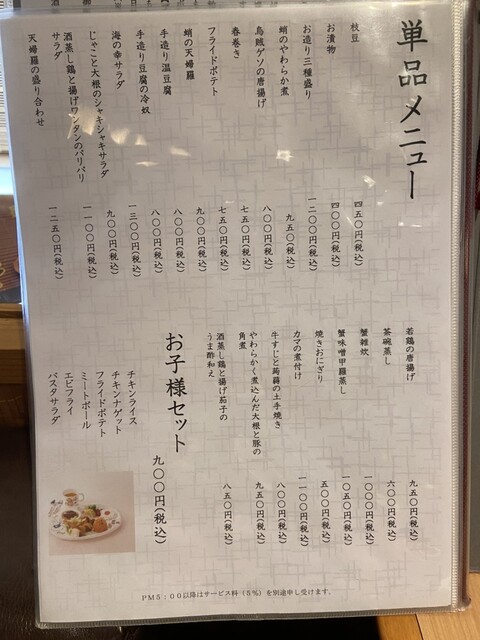 単品メニュー
枝豆 四五〇円(税込)
お漬物 四〇〇円(税込)
お造り三種盛り 一二〇〇円(税込)
蛸のやわらか煮 九五〇円(税込)
烏賊ゲソの唐揚げ 八〇〇円(税込)
春巻き 七五〇円(税込)
フライドポテト 七五〇円(税込)
蛸の天婦羅 九〇〇円(税込)
手造り温豆腐 八〇〇円(税込)
手造り豆腐の冷奴 八〇〇円(税込)
海の幸サラダ 一三〇〇円(税込)
じゃこと大根のシャキシャキサラダ 九〇〇円(税込)
酒蒸し鶏と揚げワンタンのパリパリ
サラダ 一一〇〇円(税込)
天婦羅の盛り合わせ 一二五〇円(税込)
若鶏の唐揚げ 九五〇円(税込)
茶碗蒸し 六〇〇円(税込)
蟹雑炊 一〇〇〇円(税込)
蟹味噌甲羅蒸し 一〇五〇円(税込)
焼きおにぎり 五〇〇円(税込)
カマの煮付け 一一〇〇円(税込)
牛すじと蒟蒻の土手焼き 八〇〇円(税込)
やわらかく煮込んだ大根と豚の
角煮 九五〇円(税込)
酒蒸し鶏と揚げ茄子の
うま酢和え 八五〇円(税込)
お子様セット 九〇〇円(税込)
チキンライス
チキンナゲット
フライドポテト
ミートボール
エビフライ
パスタサラダ
PM5：00以降はサービス料（5％）を別途申し受けます。